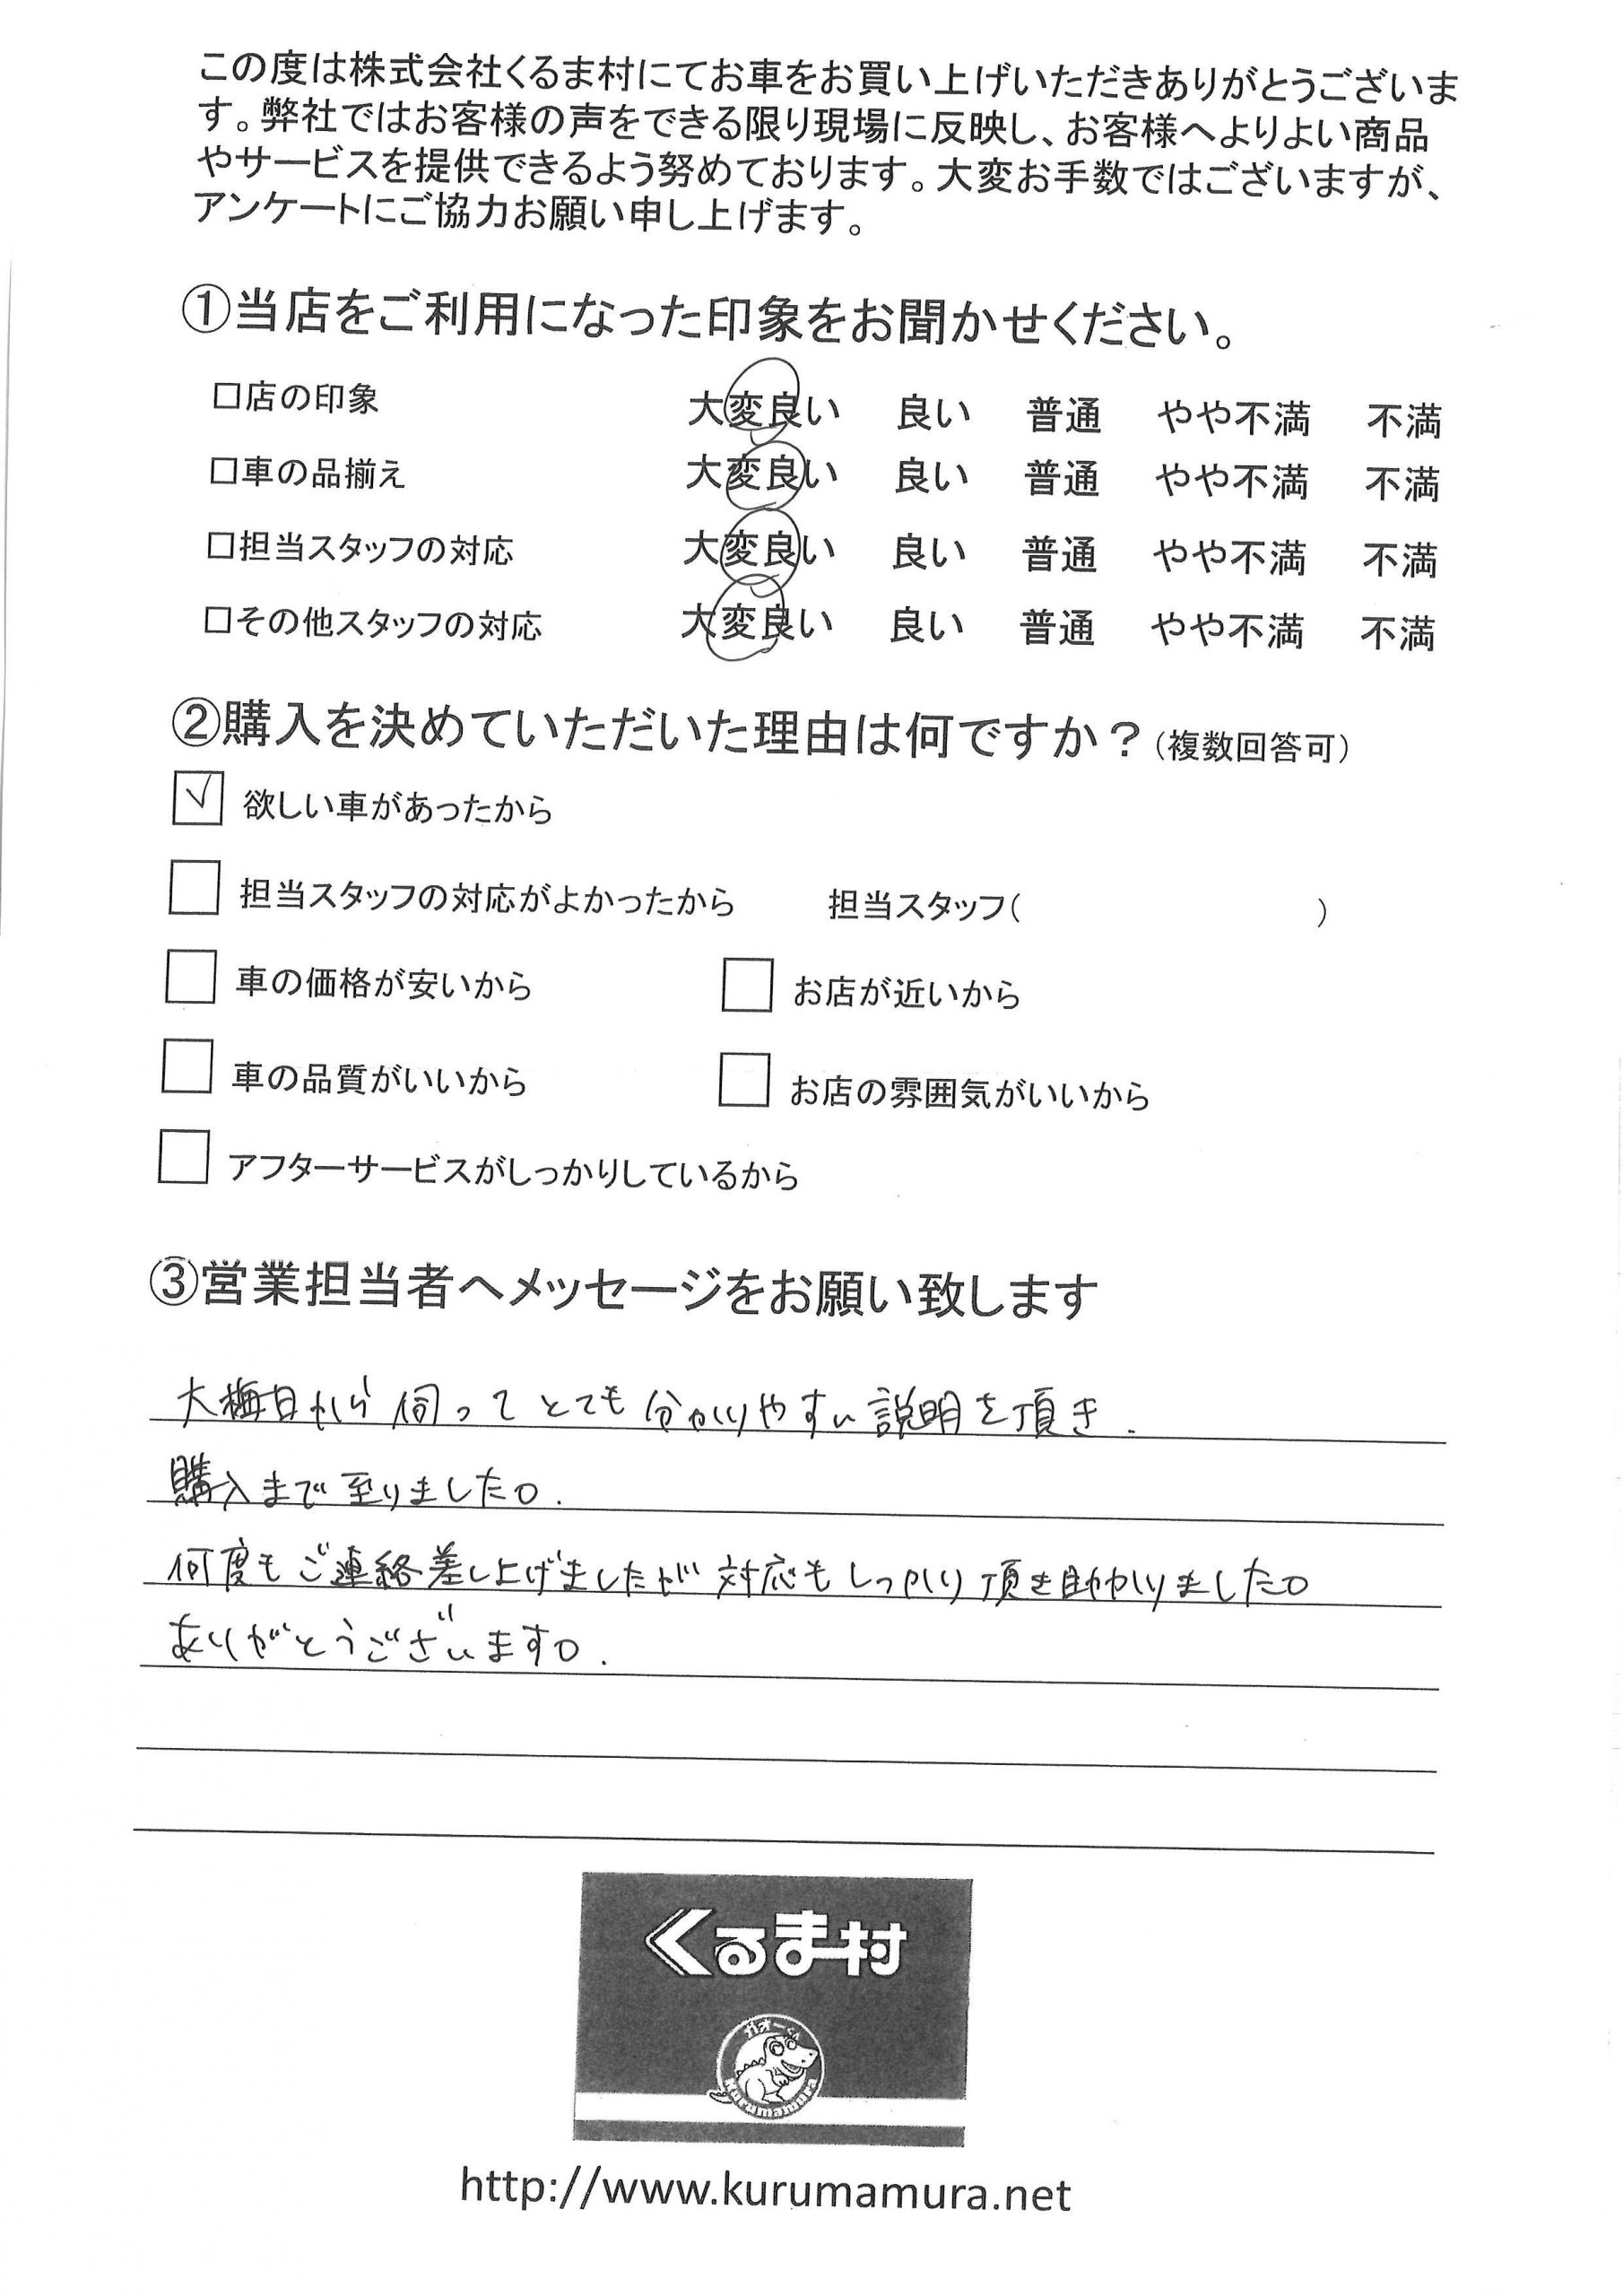 この度は株式会社くるま村にてお車をお買い上げいただきありがとうございま
す。弊社ではお客様の声をできる限り現場に反映し、お客様へよりよい商品
やサービスを提供できるよう努めております。大変お手数ではございますが、
アンケートにご協力お願い申し上げます。
①当店をご利用になった印象をお聞かせください。
□店の印象 大変良い 良い 普通 やや不満 不満
□車の品揃え 大変良い 良い 普通 やや不満 不満
□担当スタッフの対応 大変良い 良い 普通 やや不満 不満
□その他スタッフの対応 大変良い 良い 普通 やや不満 不満
②購入を決めていただいた理由は何ですか？(複数回答可)
☑ 欲しい車があったから
□ 担当スタッフの対応がよかったから 担当スタッフ( )
□ 車の価格が安いから □ お店が近いから
□ 車の品質がいいから □ お店の雰囲気がいいから
□ アフターサービスがしっかりしているから
③営業担当者へメッセージをお願い致します
大晦日から伺ってとても分かりやすい説明を頂き.
購入まで至りました。.
何度もご連絡差し上げましたが対応もしっかり頂き助かりました。
ありがとうございます。.
くるま村
ガオーくん
Kurumamura
http://www.kurumamura.net